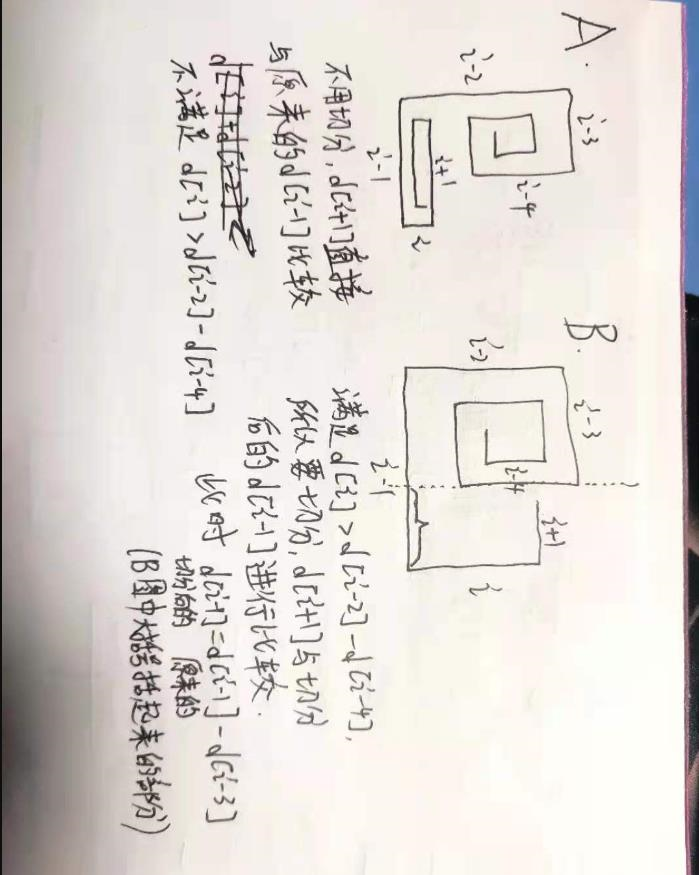 A.
i-3
i-2
i-4
i+1
i
i-1
不用切分,d[i+1]直接
与原来的d[i-1]比较
不满足 d[i]>d[i-2]-d[i-4]
B.
i-3
i-2
i-4
i+1
i
i-1
满足 d[i]>d[i-2]-d[i-4],
所以要切分,d[i+1]与切分
后的d[i-1]进行比较.
此时 d[i-1]=d[i-1]-d[i-3]
切分后的 原来的
(B图中大括号括起来的部分)